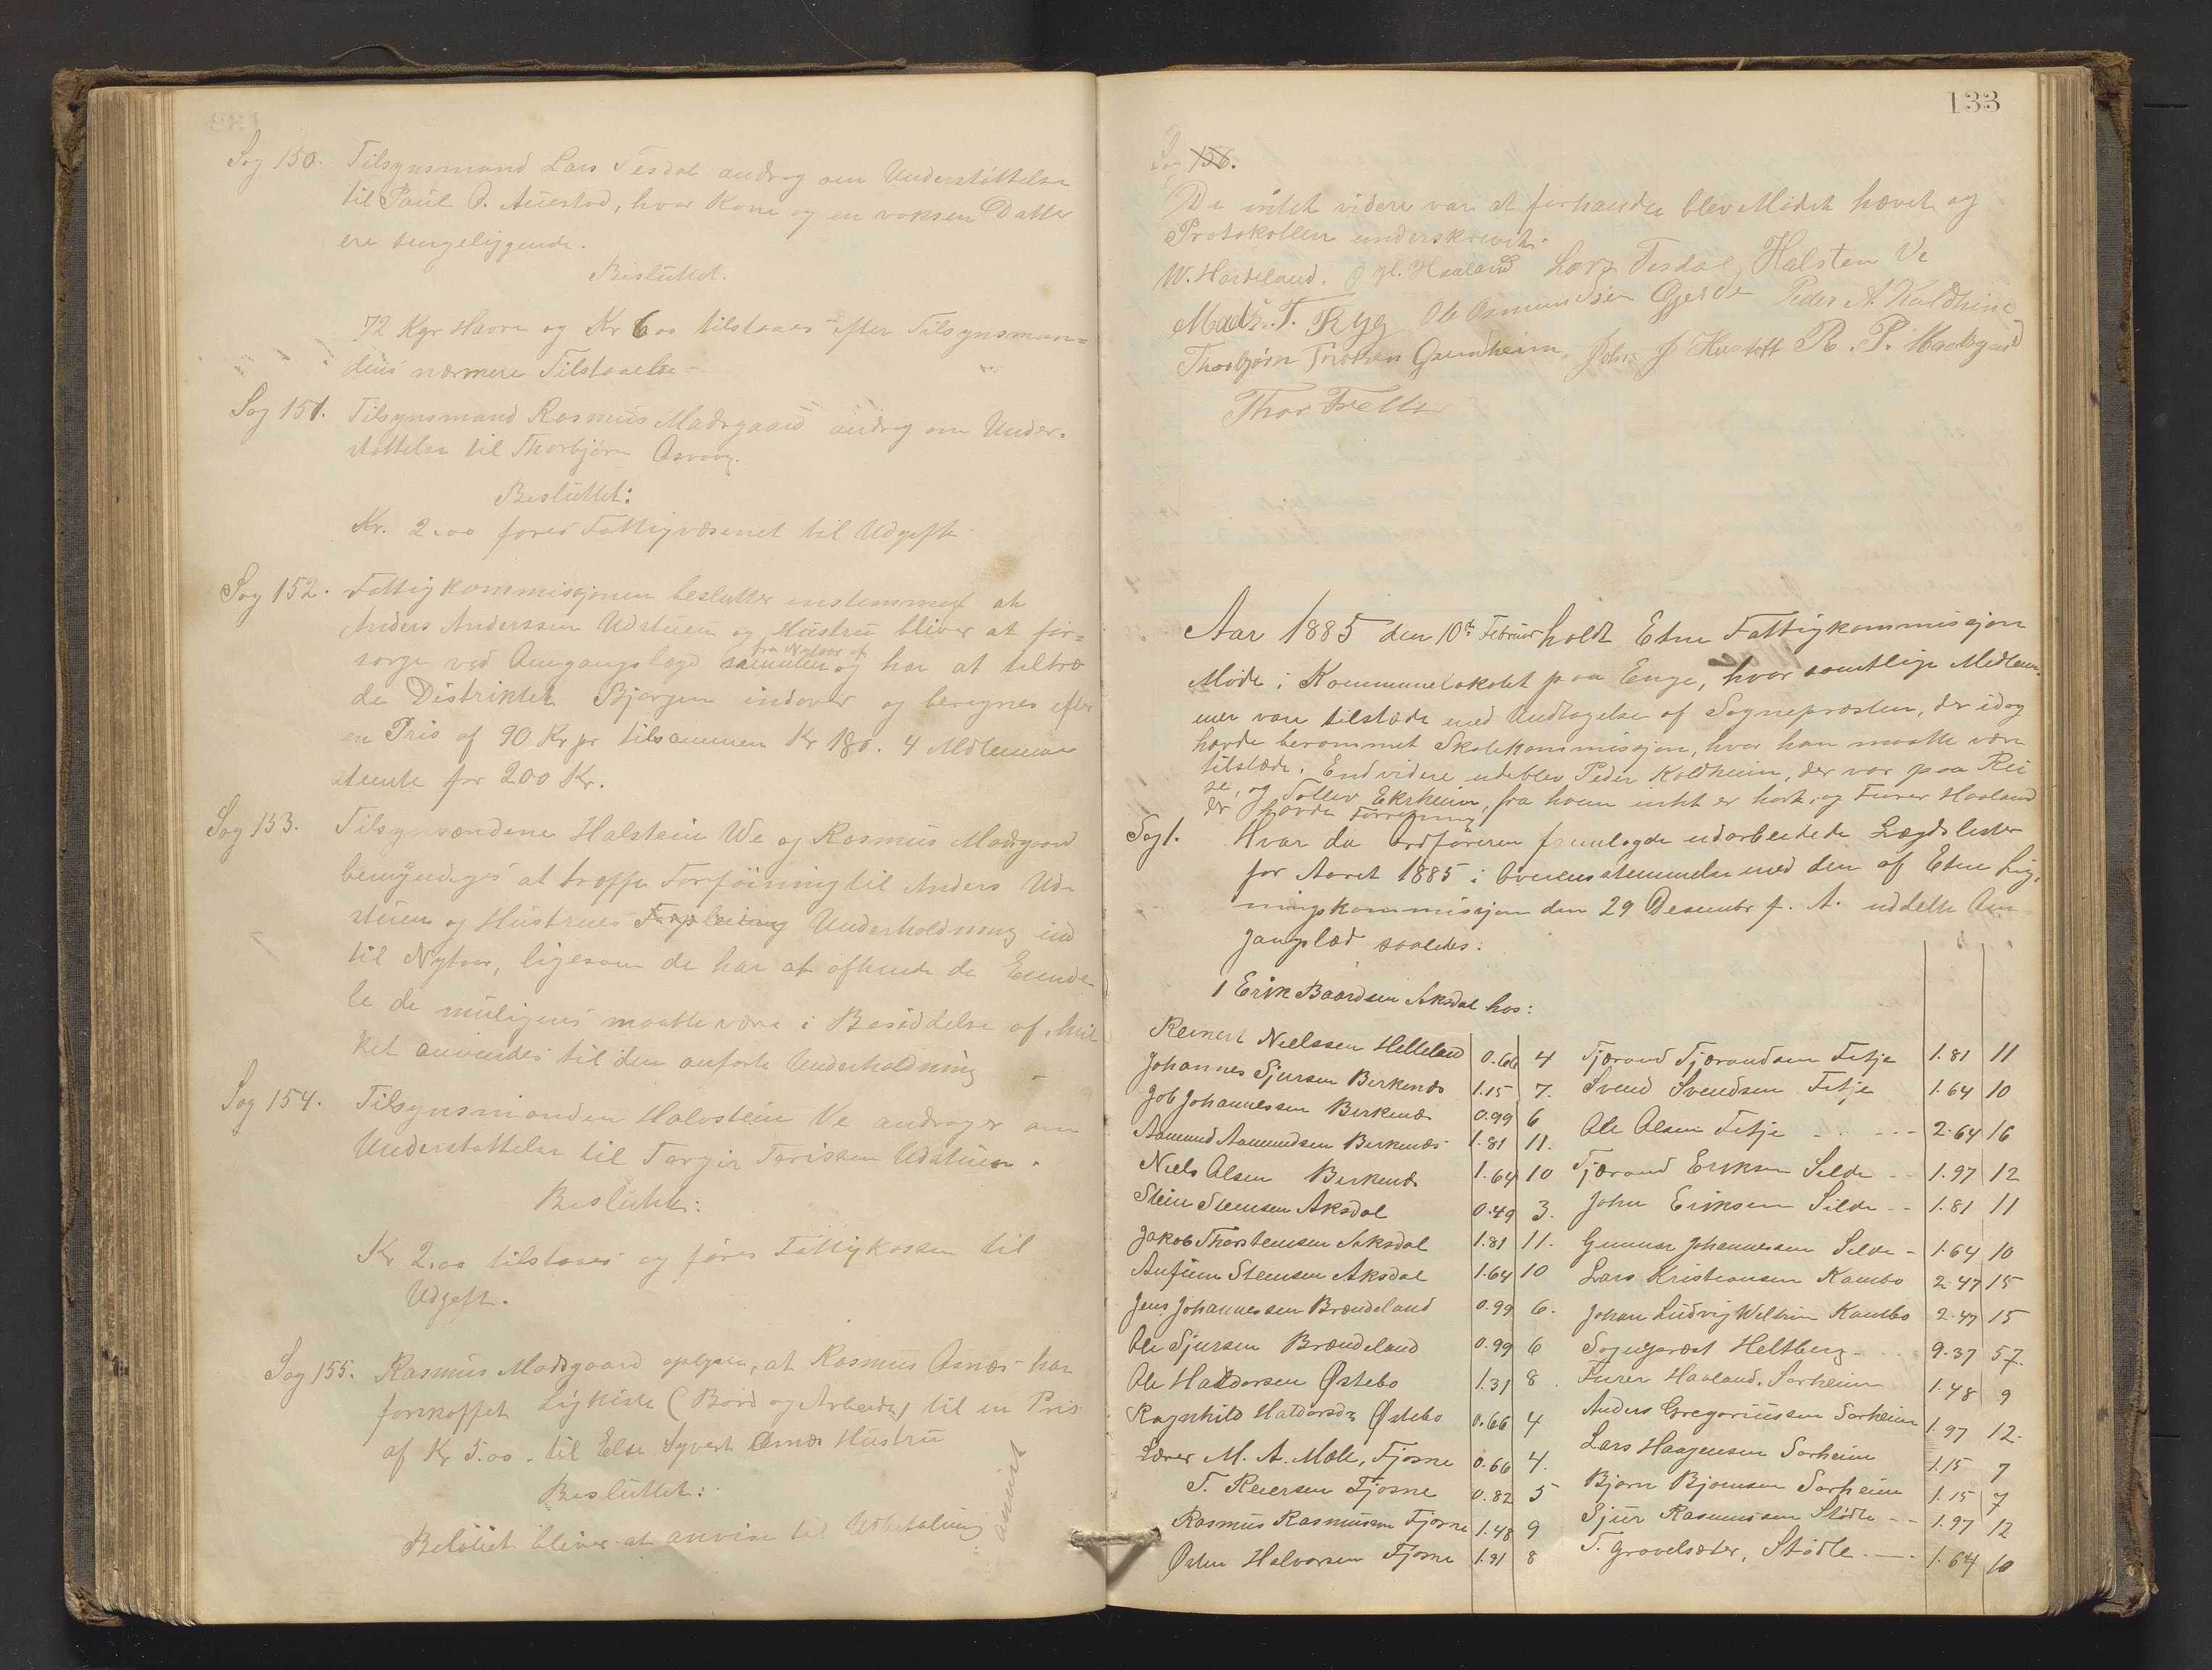 Sag 150. Tilsynsmand Lars Tesdal androg om Understøttelse
til Paul O. Auestad, hvor Kone og en voksen Datter
ere sengeliggende.
Besluttet.
72 Kgr Havre og Kr 6.00 tilstaaes efter Tilsynsman=
dens nærmere Tilstaaelse -
Sag 151. Tilsynsmand Rasmus Madsgaard androg om Under-
støttelse til Thorbjørn Osvaag.
Besluttet:
Kr. 2.00 føres Fattigvæsenet til Udgift
Sag 152. Fattigkommissjonen beslutter enstemmigt at
Anders Anderssen Udstuen og Hustru bliver at for=
fra Nytaar af
sørge ved Omgangslægd sammen og har at tiltræ
de Distriktet Bjørgen indover og beregnes efter
en Pris af 90 Kr pr tilsammen Kr 180. 4 Medlemmer
stemte for 200 Kr.
Sag 153. Tilsynsmændene Halstein We og Rasmus Madsgaard
bemyndiges at træffe Forføining til Anders Ud-
stuen og Hustrues Underholdning ind
til Nytaar, ligesom de har at afhende de Eiende-
le de muligens maatte være i Besiddelse af, hvil
ket anvendes til den anførte Underholdning -
Sag 154. Tilsynsmanden Halvstein Ve androger om
Understøttelse til Torger Udstuen.
Besluttet:
Kr 2.00 tilstaaes og føres Fattigkassen til
Udgift.
Sag 155. Rasmus Madsgaard oplyser, at Rasmus Osnæs har
forskaffet Ligkiste (Bord og Arbeide) til en Pris
af Kr 5.00 - til Else Syvert Osnæs Hustru
Besluttet:
Beløbet bliver at anvise til Udbetaling
anvist
133
Sag 156.
Da intet videre var at forhandle blev Mødet hævet og
Protokollen underskrevet.
W. Hardeland. Haaland Lars Tesdal Halsten Ve
Mads. T. Ryg Ole Osmundsen Gjerde Peder A. Koldheim
Thorbjørn Grindheim John J R. P. Madsgaard
Thor Frette
Aar 1885 den 10de Februar holdt Etne Fattigkommissjon
Møde i Kommunelokalet paa Enge, hvor samtlige Medlem-
mer vare tilstæde med Undtagelse af Sognepræsten, der idag
havde berammet Skolekommissjon, hvor han maatte være
tilstæde. Endvidere udeblev Peder Koldheim, der var paa Rei
se, og Tollev Ekrheim, fra hvem intet er hørt, og Furer Haaland
der havde Forretning.
Sag 1. Hvor da Ordføreren fremlagde udarbeidede Lægdslister
for Aaret 1885 i Overensstemmelse med den af Etne Lig-
ningskommissjon den 29 Desember f. A. uddelte Om
gangslæd saaledes:
1 Erik Baardsen Aksdal hos:
Reinert Nielssen Helleland 0.66 4 Tjærand Tjærandsen Fitje 1.81 11
Johannes Sjursen Birkenæs 1.15 7. Svend Svendsen Fitje 1.64 10
Job Johannessen Birkenæs 0.99 6 Ole Olsen Fitje - - - 2.64 16
Aamund Aamundsen Birkenæs 1.81 11. Tjærand Eriksen Silde - - 1.97 12
Niels Olsen Birkenæs 1.64 10 John Eriksen Silde - - 1.81 11
Stein Steinsen Aksdal 0.49 3. Gunnar Johannessen Silde - 1.64 10
Jakob Thorsteinsen Aksdal 1.81 11. Lars Kristiansen Kambo 2.47 15
Anfinn Steinsen Aksdal 1.64 10 Johan Ludvig Kambo 2.47 15
Jens Johannessen Brændeland 0.99 6. Sognepræst Heltberg - 9.37 57.
Ole Sjursen Brændeland 0.99 6 Furer Haaland, Sørheim 1.48 9
Ole Haldorsen Østebø 1.31 8. Anders Gregoriussen Sørheim 1.97 12.
Ragnhild Haldorsdr Østebø 0.66 4 Lars Haagensen Sørheim 1.15 7
Lærer M. A. Mæle, Fjøsne 0.66 4. Bjørn Bjørnsen Sørheim 1.15 7
T. Reiersen Fjøsne 0.82 5 Sjur Rasmussen Stødle - - 1.97 12
Rasmus Rasmussen Fjøsne 1.48 9 T. Gravelsæter, Stødle - - 1.64 10
Østen Halvorsen Fjøsne 1.31 8